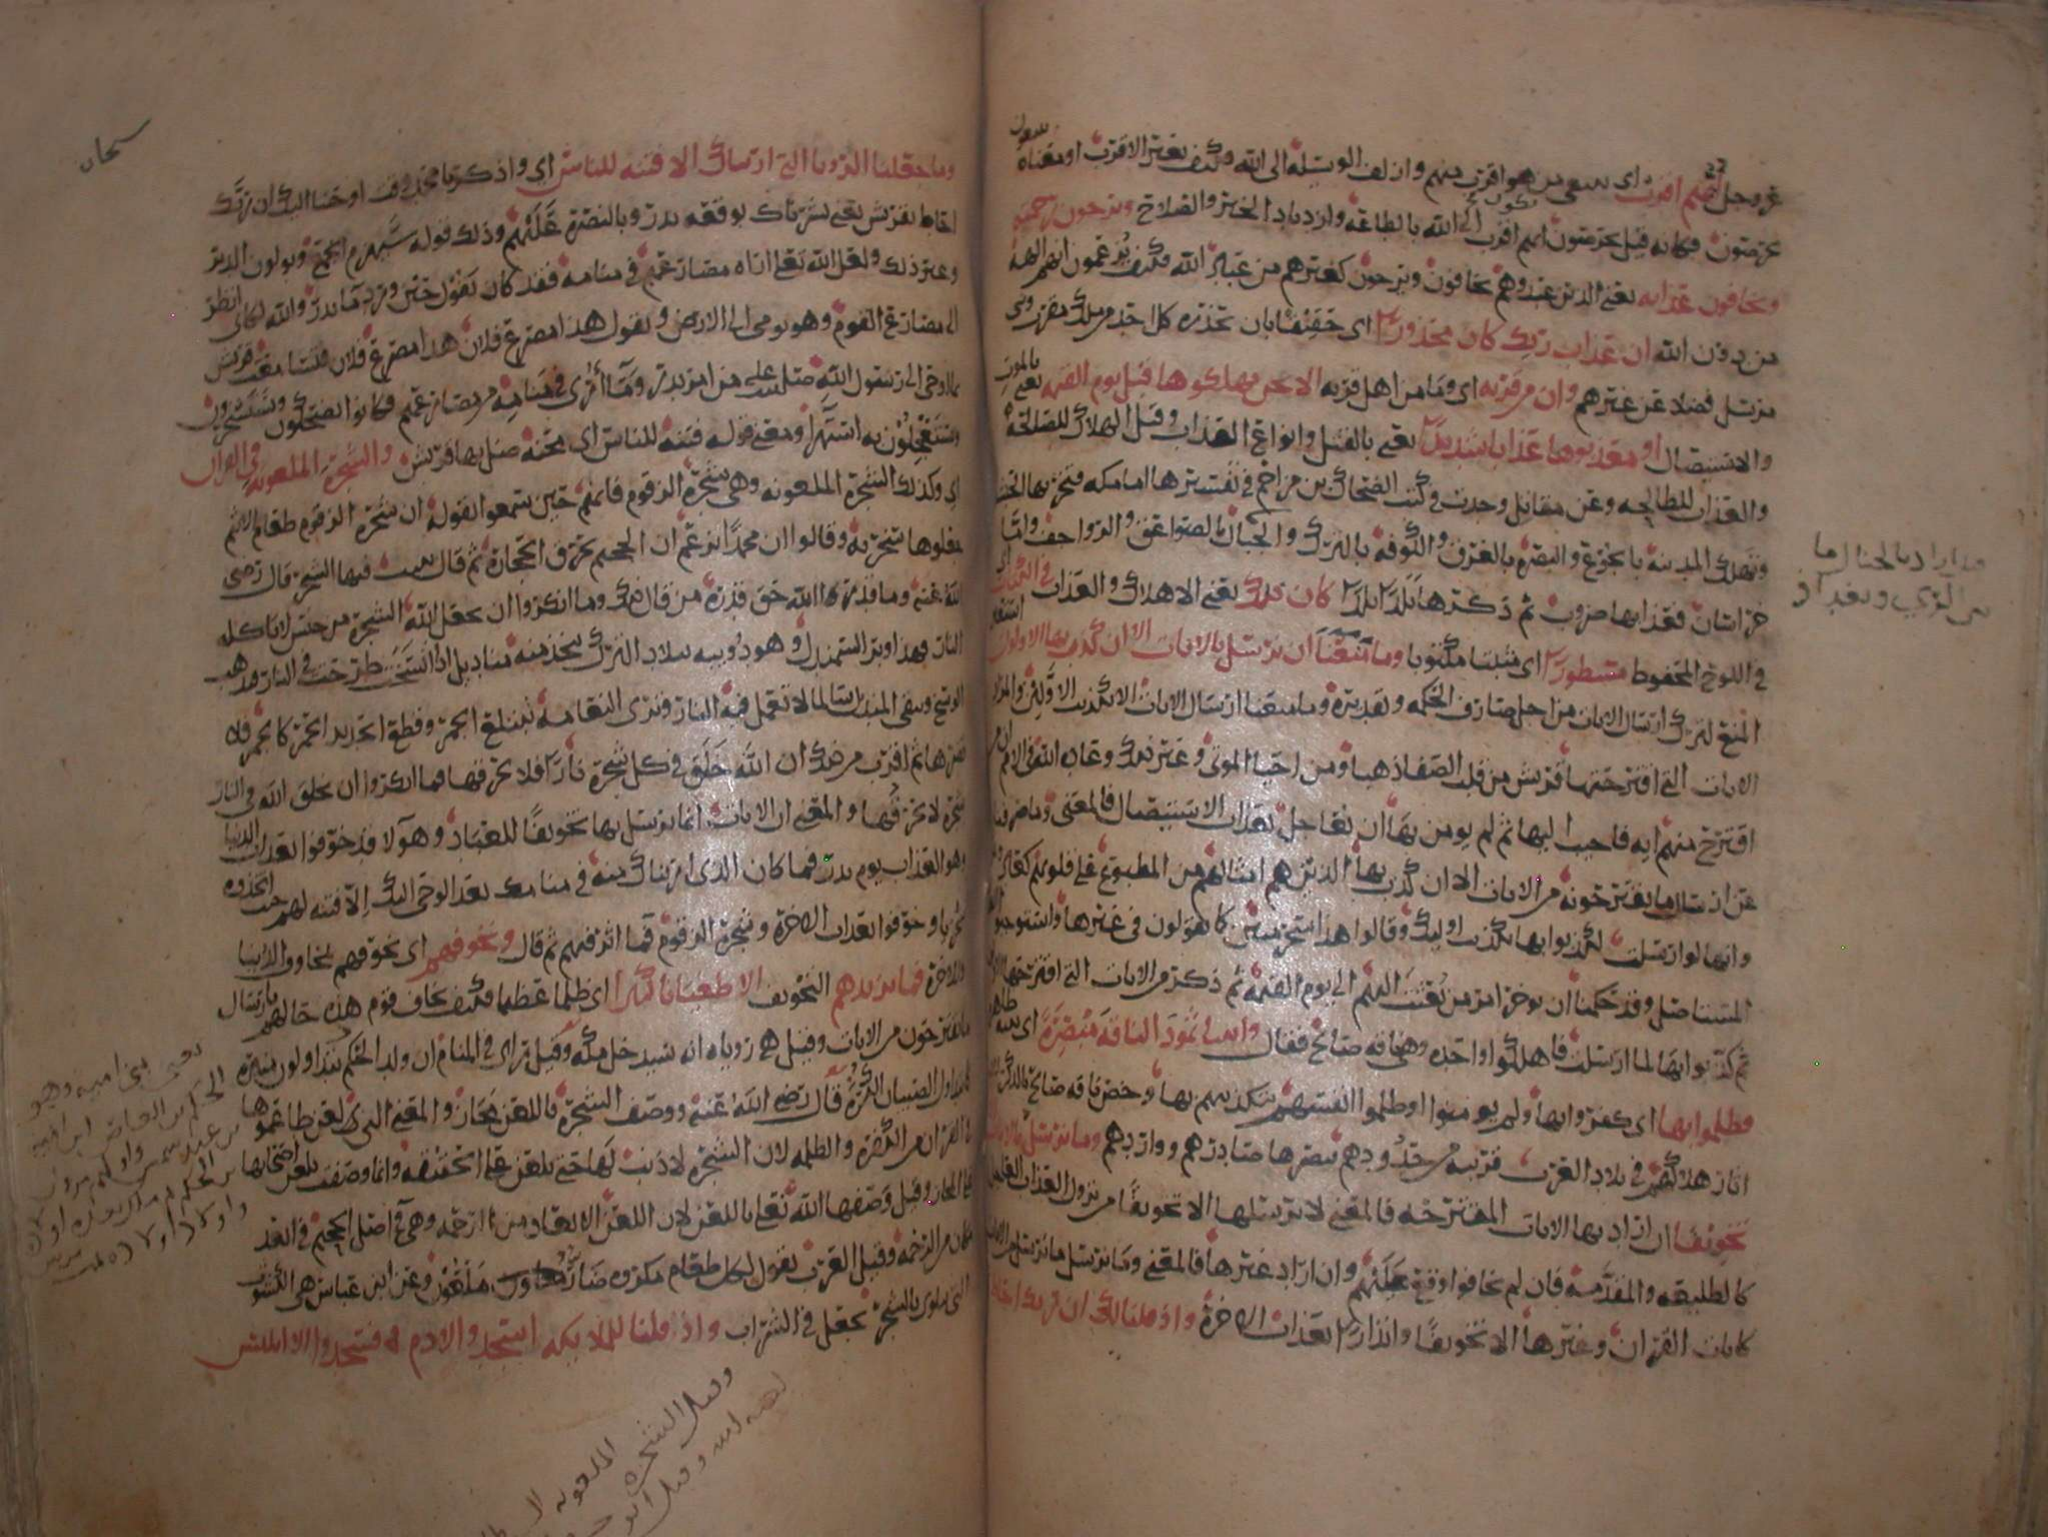 عز وجل ايهم اقرب اي يبتغي من هو اقرب منهم وازلف الوسيلة الى الله فكيف بغير الاقرب او معناه
يحرصون فكانه قيل يحرصون ايهم يكون اقرب الى الله بالطاعة وازدياد الخير والصلاح ويرجون رحمته
ويخافون عذابه يعني الذين عبدوهم يخافون ويرجون كغيرهم من عباد الله فكيف يزعمون انهم الهة
من دون الله ان عذاب ربك كان محذورا اي حقيقا بان يحذره كل احد من ملك مقرب ونبي
مرسل فضلا عن غيرهم وان من قرية اي وما من اهل قرية الا نحن مهلكوها قبل يوم القيمة يعني بالموت
والاستيصال او معذبوها عذابا شديدا يعني بالقتل وانواع العذاب وقيل الهلاك للصالحة
والعذاب للطالحة وعن مقاتل وجدت في كتب الضحاك بن مزاحم في تفسيرها اما مكة فتخربها الحبشة
وتهلك المدينة بالجوع والبصرة بالغرق والكوفة بالترك والجبال بالصواعق والرواجف واما
خراسان فعذابها ضروب ثم ذكرها بلدا بلدا كان ذلك يعني الاهلاك والعذاب في الكتاب اي
في اللوح المحفوظ مسطورا اي مثبتا مكتوبا وما منعنا ان نرسل بالايات الا ان كذب بها الاولون استعار
المنع لترك ارسال الايات من اجل صارف الحكمة وتقديره وما منعنا ارسال الايات الا تكذيب الاولين والمراد
الايات التي اقترحتها قريش من قلب الصفا ذهبا ومن احيا الموتى وغير ذلك وعادة الله في الامم ان من
اقترح منهم اية فاجيب اليها ثم لم يومن بها ان يعاجل بعذاب الاستيصال فالمعنى وما صرفنا
عن ارسال ما يقترحونه من الايات الا ان كذب بها الذين هم امثالهم من المطبوع على قلوبهم كعاد وثمود
وانها لو ارسلت لكذبوا بها تكذيب اوليك وقالوا هذا سحر مبين كما يقولون في غيرها واستوجبوا العذاب
المستاصل وقد حكمنا ان نوخر امر من بعثت اليهم الى يوم القيمة ثم ذكر من الايات التي اقترحها الاولون
ثم كذبوا بها لما ارسلت فاهلكوا واحدة وهي ناقة صالح فقال واتينا ثمود الناقة مبصرة اي بينة ظاهرة
فظلموا بها اي كفروا بها ولم يومنوا او ظلموا انفسهم بتكذيبهم بها وخص ناقة صالح بالذكر لان
اثار هلاكهم في بلاد العرب قريبة من حدودهم يبصرها صادرهم وواردهم وما نرسل بالايات الا
تخويفا ان اراد بها الايات المقترحة فالمعنى لا نرسلها الا تخويفا من نزول العذاب العاجل
كالطليعة والمقدمة فان لم يخافوا وقع عليهم وان اراد غيرها فالمعنى وما نرسل ما نرسل من الايات
كايات القران وغيرها الا تخويفا وانذارا بعذاب الاخرة واذ قلنا لك ان ربك احاط
وما جعلنا الرويا التي اريناك الا فتنة للناس اي واذكر يا محمد وقت اوحينا اليك ان ربك
احاط بقريش يعني بشرناك بوقعة بدر وبالنصرة عليهم وذلك قوله سيهزم الجمع ويولون الدبر
وغير ذلك ولعل الله تعالى اراه مصارعهم في منامه فقد كان يقول حين ورد ما بدر والله لكاني انظر
الى مصارع القوم وهو يومي الى الارض ويقول هذا مصرع فلان هذا مصرع فلان فتسامعت قريش
بما اوحي الى رسول الله صلى الله عليه من امر بدر وما أري في منامه من مصارعهم فكانوا يضحكون ويسخرون
ويستعجلون به استهزا ومعنى قوله فتنة للناس اي محنة ضل بها قريش والشجرة الملعونة في القران
اي وكذلك الشجرة الملعونة وهي شجرة الزقوم فانهم حين سمعوا بقوله ان شجرة الزقوم طعام الاثيم
جعلوها سخرية وقالوا ان محمدا يزعم ان الجحيم يحرق الحجارة ثم قال ينبت فيها الشجر قال رضي
الله عنه وما قدروا الله حق قدره من قال ذلك وما انكروا ان يجعل الله الشجرة من جنس لا تاكله
النار فهذا وبر السمندل وهو دويبة ببلاد الترك يتخذ منه مناديل اذا اتسخت طرحت في النار فذهب
الوسخ وبقي المنديل سالما لا تعمل فيه النار وترى النعامة تبتلع الجمر وقطع الحديد الحمر كالجمر فلا
يضرها ثم اقرب من ذلك ان الله خلق في كل شجرة نارا فلا تحرقها فما انكروا ان يخلق الله في النار
شجرة لا تحرقها والمعنى ان الايات انما نرسل بها تخويفا للعباد وهولا قد خوفوا بعذاب الدنيا
وهو العذاب يوم بدر فما كان الذي اريناك منه في منامك بعد الوحي اليك الا فتنة لهم حيث اتخذوه
سخريا وخوفوا بعذاب الاخرة وشجرة الزقوم فما اثر فيهم ثم قال ونخوفهم اي نخوفهم بمخاوف الدنيا
والاخرة فما يزيدهم التخويف الا طغيانا كبيرا اي ظلما عظيما فكيف يخاف قوم هذه حالهم بارسال
ما يقترحون من الايات وقيل هي روياه انه سيدخل مكة وقيل راى في المنام ان ولد الحكم يتداولون منبره
كما يتداول الصبيان الكرة قال رضي الله عنه ووصف الشجرة باللعن مجاز والمعنى الذي لعن طاعموها
في القران من الكفرة والظلمة لان الشجرة لا ذنب لها حتى يلعن على الحقيقة وانما وصفت بلعن اصحابها
على المجاز وقيل وصفها الله تعالى باللعن لان اللعن الابعاد من الرحمة وهي في اصل الجحيم في ابعد
مكان من الرحمة وقيل العرب يقول لكل طعام مكروه ضار ملعون وعن ابن عباس هي الكشوث
التي تتلوى بالشجر يجعل في الشراب واذ قلنا للملايكة اسجدوا لادم فسجدوا الا ابليس
سبحان
وقيل الشجرة
الملعونة